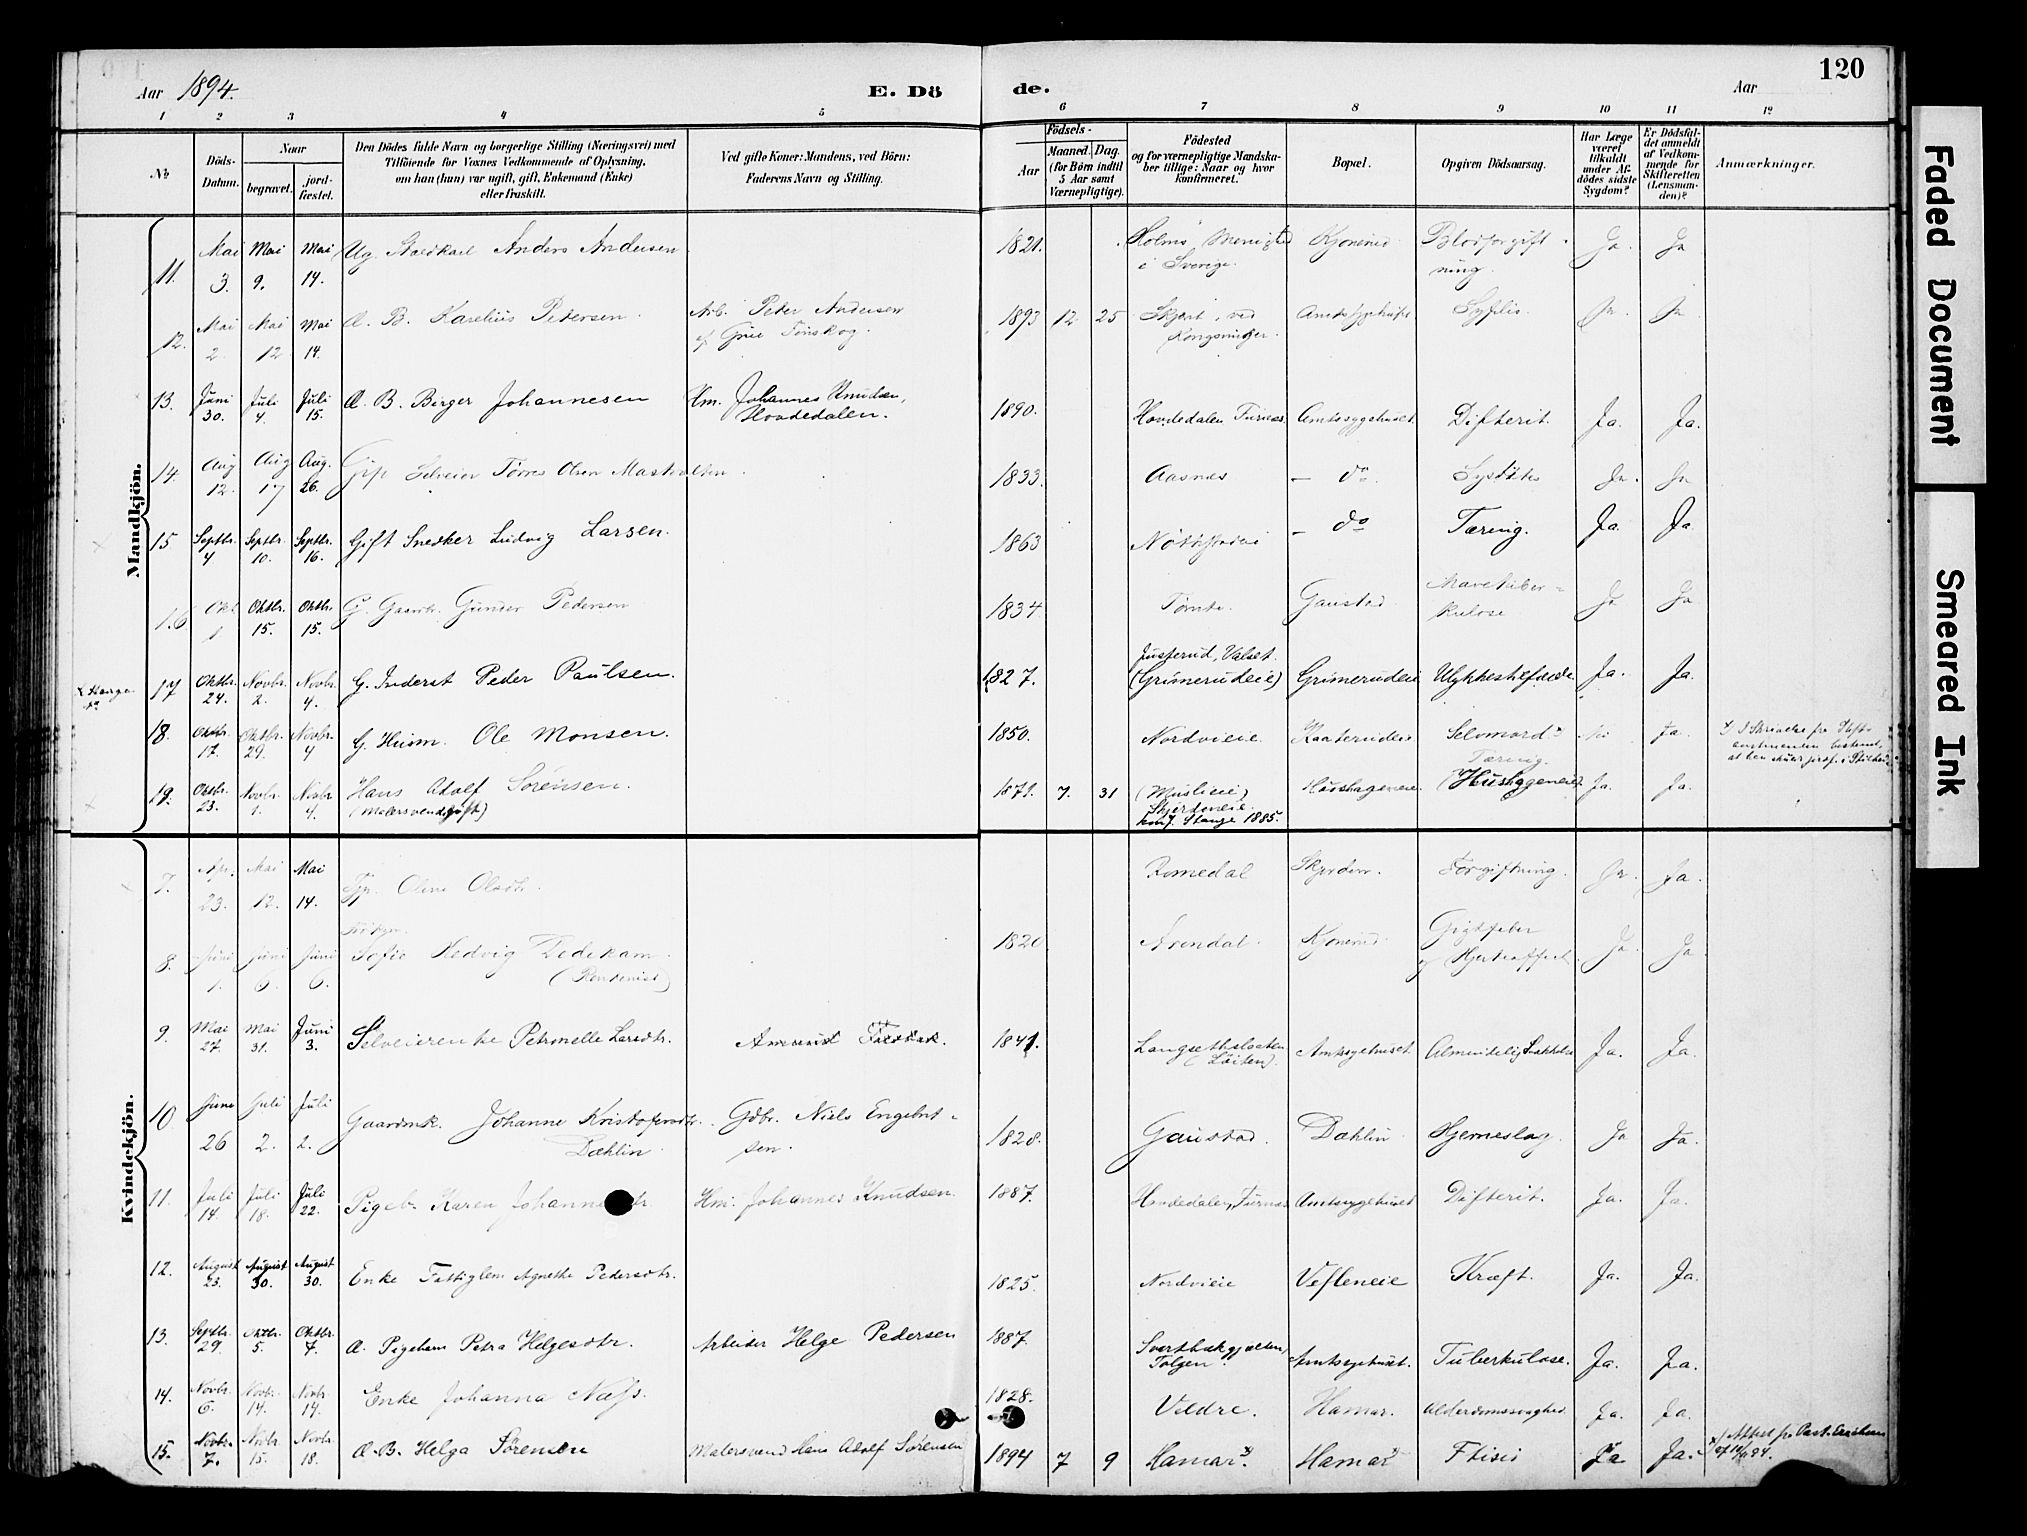 120
Aar 1894.
E. Dö
de.
Aar
1 2 3 4 5 6 7 8 9 10 11 12
No
Döds-
Datum.
Naar
begravet.
jord-
fæstet.
Den Dödes fulde Navn og borgerlige Stilling (Næringsvei) med
Tilföiende for Voxnes Vedkommende af Oplysning,
om han (hun) var ugift, gift, Enkemand (Enke)
eller fraskilt.
Ved gifte Koner: Mandens, ved Börn:
Faderens Navn og Stilling.
Födsels-
Aar
Maaned. Dag.
(for Börn indtil
5 Aar samt
Værnepligtige).
Födested
og for værnepligtige Mandska-
ber tillige: Naar og hvor
konfirmeret.
Bopæl.
Opgiven Dödsaarsag.
Har Læge
været
tilkaldt
under Af-
dödes sidste
Sygdom?
Er Dödsfal-
det anmeldt
af Vedkom-
mende for
Skifteretten
(Lensman-
den)?
Anmærkninger.
Mandkjön.
11. Mai 3. Mai 9. Mai 14. Ug. Anders Andersen 1821. Holms Menighed i Sverige. Kjonerud Blodforgift-
ning. Ja. Ja
12. Mai 2. Mai 12 Mai 14. Æ. B. Karelius Petersen. Arb. Peter Andersen
af Grue Finskog. 1893 12 25 ved
Kongsvinger. Amtssygehuset Syfilis. Ja. Ja.
13. Juni 30. Juli 4. Juli 15. Æ. B. Birger Johannesen Hm. Johannes Knudsen,
Hovdedalen. 1890. Hovdedalen Furnæs. Amtssygehuset. Difterit. Ja. Ja.
14. Aug 12. Aug 17 Aug. 26. Selveier Tørres Olsen 1833. Aasnes — do. Ja. Ja
15 Septbr. 4 Septbr. 10. Septbr. 16. Gift Snedker Ludvig Larsen. 1863 — do Tæring. Ja. Ja
16 Okt 1 Oktbr. 15. Oktbr. 15. G. Gaardbr. Gunder Pedersen 1834 Tomte. Gaustad. Mavetuber-
kulose Ja Ja
x Stange
17 Oktbr. 24. Novbr. 2. Novbr. 4. G. Inderst Peder Paulsen. 1827. Justerud, Valset.
(Grimerudeie) Grimerudeie Ulykkestilfælde. Ja. Ja.
18. Oktbr. 17. Oktbr. 29. Novbr. 4 G. Husm. Ole Monsen. 1850. Nordvieie. Kaaterudeie Selvmord x Nei Ja.
19. Oktbr. 23. Novbr. 1. Novbr. 4. Hans Adolf Sørensen.
(Malersvend gift) 1871. 7. 31 (Muslieie)
Skjerdneie.
konf. Stange 1885. Tæring.
(Hushageneie) Ja. Ja.
Kvindekjön.
7. Apr. 23. Mai 12. Mai 14. Oline Olsdtr. Romedal Skjerden. Forgiftning. Ja. Ja.
8. Juni 1. Juni 6. Juni 6. Sofie Hedvig Dedekam.
(Rentenist) 1820 Arendal. Kjonerud Gigtfeber
og Hjerteaffect Ja. Ja
9. Mai 27. Mai 31. Juni 3. Selveierenke Petronelle Larsdtr. Amund 1841. Langsethsloeten
(Løiten). Amtssygehuset Ja. Ja.
10 Juni 26 Juli 2. Juli 2. Gaardmk. Johanne Kristofersdtr.
Dæhlin Gdbr. Niels Engebret-
sen. 1828. Gaustad. Dæhlin Hjerneslag. Ja Ja.
11. Juli 14. Juli 18. Juli 22. Pigeb. Karen Johanne tr. Hm. Johannes Knudsen. 1887. Hovdedalen, Furnæs Amtssygehuset Difterit. Ja. Ja.
12. August 23. August 30. August 30. Enke Fattiglem Agnethe Pedersdtr. 1825 Nordvieie Vefleneie Kræft. Ja. Ja.
13. Septbr. 29. Oktbr. 5. Oktbr. 7. Æ. Pigebarn Petra Helgesdtr. Arbeider Helge Pedersen 1887. Svartbækgjælten,
Tolgen. Amtssygehuset. Tuberkulose. Ja. Ja.
14. Novbr. 6. Novbr. 14. Novbr. 14. Enke Johanna Næss. 1828. Veldre. Hamar. Alderdomssvaghed Ja. Ja.
15. Novbr. 7. Novbr. 15. Novbr. 18. Æ. B. Helga Sørensen Malersvend Hans Adolf Sørensen 1894 7 9 Hamar. x) Hamar x) Ftisis Ja Ja. x) Attest fra Past.
Faded Document
Smeared Ink